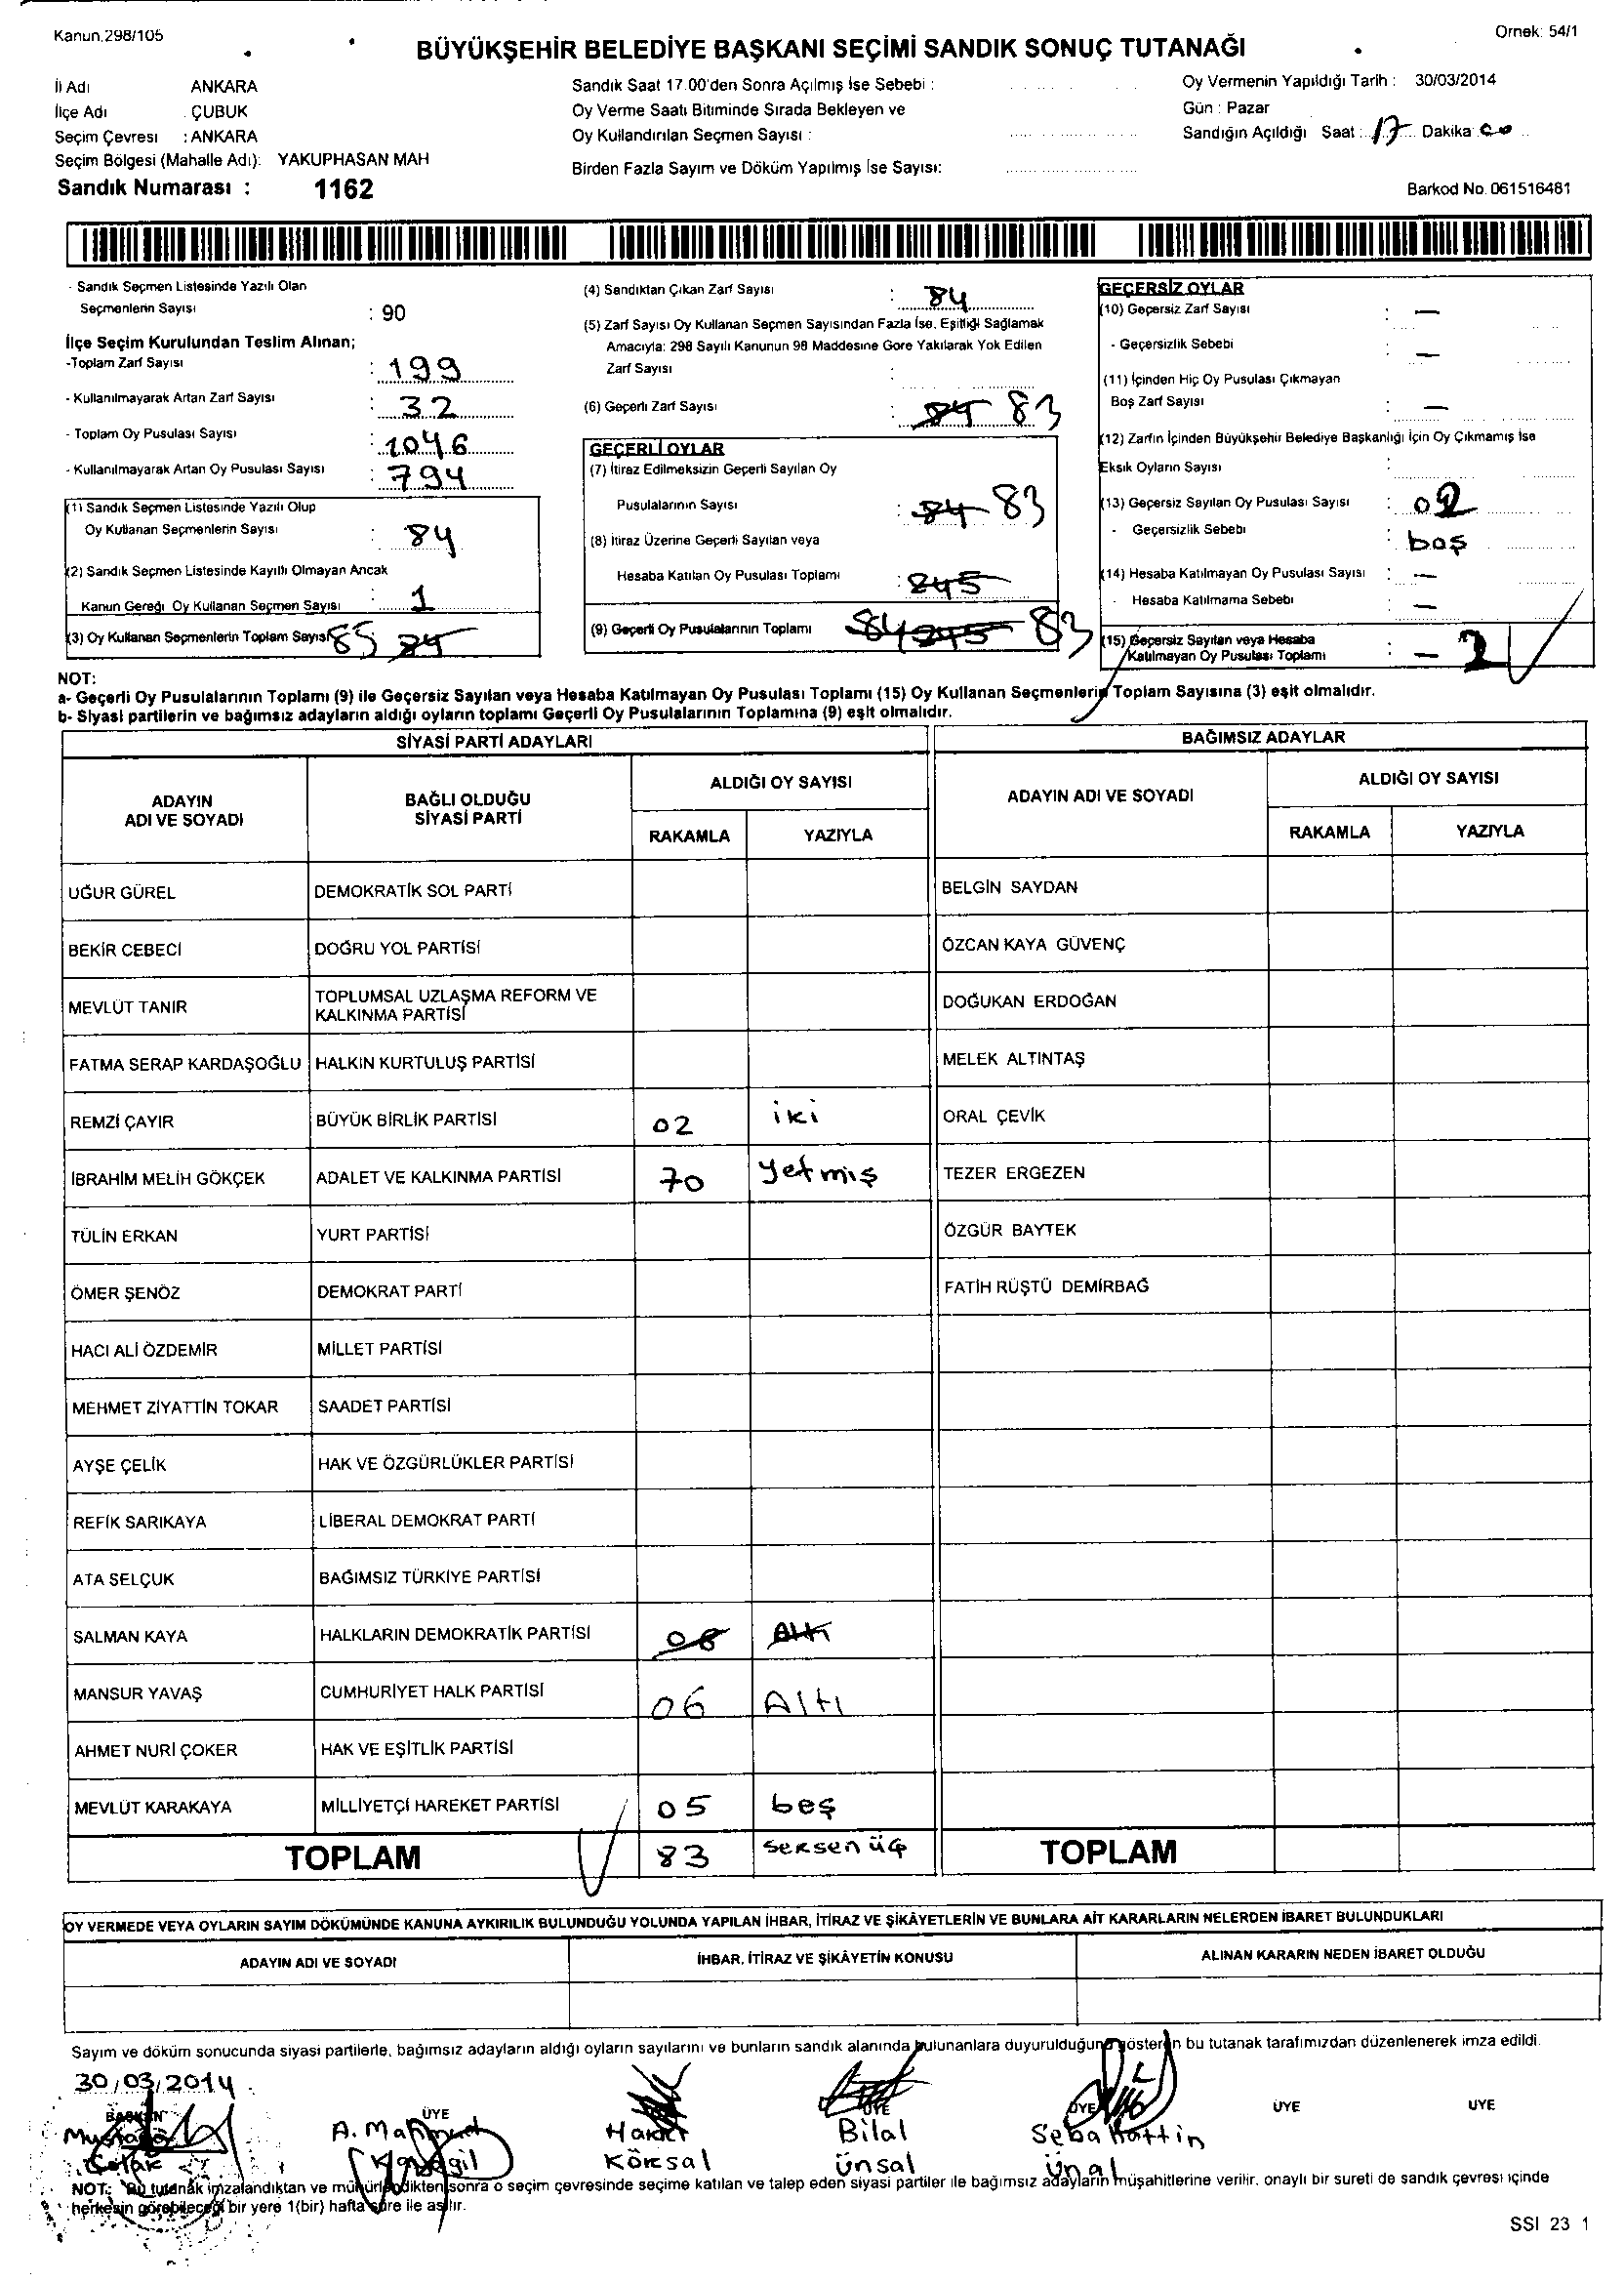 Kanun.298/105
Ornek: 54/1
BÜYÜKŞEHİR BELEDİYE BAŞKANI SEÇİMİ SANDIK SONUÇ TUTANAĞI
İl Adı ANKARA
İlçe Adı : ÇUBUK
Seçim Çevresi : ANKARA
Seçim Bölgesi (Mahalle Adı): YAKUPHASAN MAH
Sandık Numarası : 1162
Sandık Saat 17.00'den Sonra Açılmış İse Sebebi :
Oy Verme Saatı Bitiminde Sırada Bekleyen ve
Oy Kullandırılan Seçmen Sayısı :
Birden Fazla Sayım ve Döküm Yapılmış İse Sayısı:
Oy Vermenin Yapıldığı Tarih : 30/03/2014
Gün : Pazar
Sandığın Açıldığı Saat : 17 Dakika : 00
Barkod No. 061516481
- Sandık Seçmen Listesinde Yazılı Olan
Seçmenlerin Sayısı : 90
İlçe Seçim Kurulundan Teslim Alınan;
-Toplam Zarf Sayısı : 199
- Kullanılmayarak Artan Zarf Sayısı : 32
- Toplam Oy Pusulası Sayısı : 1046
- Kullanılmayarak Artan Oy Pusulası Sayısı : 794
(1) Sandık Seçmen Listesinde Yazılı Olup
Oy Kullanan Seçmenlerin Sayısı : 84
(2) Sandık Seçmen Listesinde Kayıtlı Olmayan Ancak
Kanun Gereği Oy Kullanan Seçmen Sayısı : 1
(3) Oy Kullanan Seçmenlerin Toplam Sayısı 85 84
(4) Sandıktan Çıkan Zarf Sayısı : 84
(5) Zarf Sayısı Oy Kullanan Seçmen Sayısından Fazla İse, Eşitliği Sağlamak
Amacıyla: 298 Sayılı Kanunun 98 Maddesine Gore Yakılarak Yok Edilen
Zarf Sayısı :
(6) Geçerli Zarf Sayısı : 84 83
GEÇERLİ OYLAR
(7) İtiraz Edilmeksizin Geçerli Sayılan Oy
Pusulalarının Sayısı : 84 83
(8) İtiraz Üzerine Geçerli Sayılan veya
Hesaba Katılan Oy Pusulası Toplamı : 245
(9) Geçerli Oy Pusulalarının Toplamı 84 245 83
GEÇERSİZ OYLAR
(10) Geçersiz Zarf Sayısı : —
- Geçersizlik Sebebi : —
(11) İçinden Hiç Oy Pusulası Çıkmayan
Boş Zarf Sayısı : —
(12) Zarfın İçinden Büyükşehir Belediye Başkanlığı İçin Oy Çıkmamış İse
Eksik Oyların Sayısı :
(13) Geçersiz Sayılan Oy Pusulası Sayısı : 02
- Geçersizlik Sebebi : boş
(14) Hesaba Katılmayan Oy Pusulası Sayısı : —
- Hesaba Katılmama Sebebi : —
(15) Geçersiz Sayılan veya Hesaba
Katılmayan Oy Pusulası Toplamı : — 2
NOT:
a- Geçerli Oy Pusulalarının Toplamı (9) ile Geçersiz Sayılan veya Hesaba Katılmayan Oy Pusulası Toplamı (15) Oy Kullanan Seçmenlerin Toplam Sayısına (3) eşit olmalıdır.
b- Siyasi partilerin ve bağımsız adayların aldığı oyların toplamı Geçerli Oy Pusulalarının Toplamına (9) eşit olmalıdır.
SİYASİ PARTİ ADAYLARI
BAĞIMSIZ ADAYLAR
ADAYIN
ADI VE SOYADI
BAĞLI OLDUĞU
SİYASİ PARTİ
ALDIĞI OY SAYISI
RAKAMLA YAZIYLA
ADAYIN ADI VE SOYADI
ALDIĞI OY SAYISI
RAKAMLA YAZIYLA
UĞUR GÜREL DEMOKRATİK SOL PARTİ BELGİN SAYDAN
BEKİR CEBECİ DOĞRU YOL PARTİSİ ÖZCAN KAYA GÜVENÇ
MEVLÜT TANIR TOPLUMSAL UZLAŞMA REFORM VE
KALKINMA PARTİSİ DOĞUKAN ERDOĞAN
FATMA SERAP KARDAŞOĞLU HALKIN KURTULUŞ PARTİSİ MELEK ALTINTAŞ
REMZİ ÇAYIR BÜYÜK BİRLİK PARTİSİ 02 iki ORAL ÇEVİK
İBRAHİM MELİH GÖKÇEK ADALET VE KALKINMA PARTİSİ 70 yetmiş TEZER ERGEZEN
TÜLİN ERKAN YURT PARTİSİ ÖZGÜR BAYTEK
ÖMER ŞENÖZ DEMOKRAT PARTİ FATİH RÜŞTÜ DEMİRBAĞ
HACI ALİ ÖZDEMİR MİLLET PARTİSİ
MEHMET ZİYATTİN TOKAR SAADET PARTİSİ
AYŞE ÇELİK HAK VE ÖZGÜRLÜKLER PARTİSİ
REFİK SARIKAYA LİBERAL DEMOKRAT PARTİ
ATA SELÇUK BAĞIMSIZ TÜRKİYE PARTİSİ
SALMAN KAYA HALKLARIN DEMOKRATİK PARTİSİ 06 Altı
MANSUR YAVAŞ CUMHURİYET HALK PARTİSİ 06 Altı
AHMET NURİ ÇOKER HAK VE EŞİTLİK PARTİSİ
MEVLÜT KARAKAYA MİLLİYETÇİ HAREKET PARTİSİ 05 beş
TOPLAM 83 seksen üç TOPLAM
OY VERMEDE VEYA OYLARIN SAYIM DÖKÜMÜNDE KANUNA AYKIRILIK BULUNDUĞU YOLUNDA YAPILAN İHBAR, İTİRAZ VE ŞİKÂYETLERİN VE BUNLARA AİT KARARLARIN NELERDEN İBARET BULUNDUKLARI
ADAYIN ADI VE SOYADI İHBAR, İTİRAZ VE ŞİKÂYETİN KONUSU ALINAN KARARIN NEDEN İBARET OLDUĞU
Sayım ve döküm sonucunda siyasi partilerle, bağımsız adayların aldığı oyların sayılarını ve bunların sandık alanında bulunanlara duyurulduğunu gösteren bu tutanak tarafımızdan düzenlenerek imza edildi.
30/03/2014
BAŞKAN ÜYE ÜYE ÜYE ÜYE ÜYE
Mustafa A. Mahmut Haider Bilal Sebahattin
Çolak Köksal Ünsal Ünal
NOT: Bu tutanak imzalandıktan ve mühürlendikten sonra o seçim çevresinde seçime katılan ve talep eden siyasi partiler ile bağımsız adayların müşahitlerine verilir, onaylı bir sureti de sandık çevresi içinde
herkesin görebileceği bir yere 1(bir) hafta süre ile asılır.
SSI 23 1